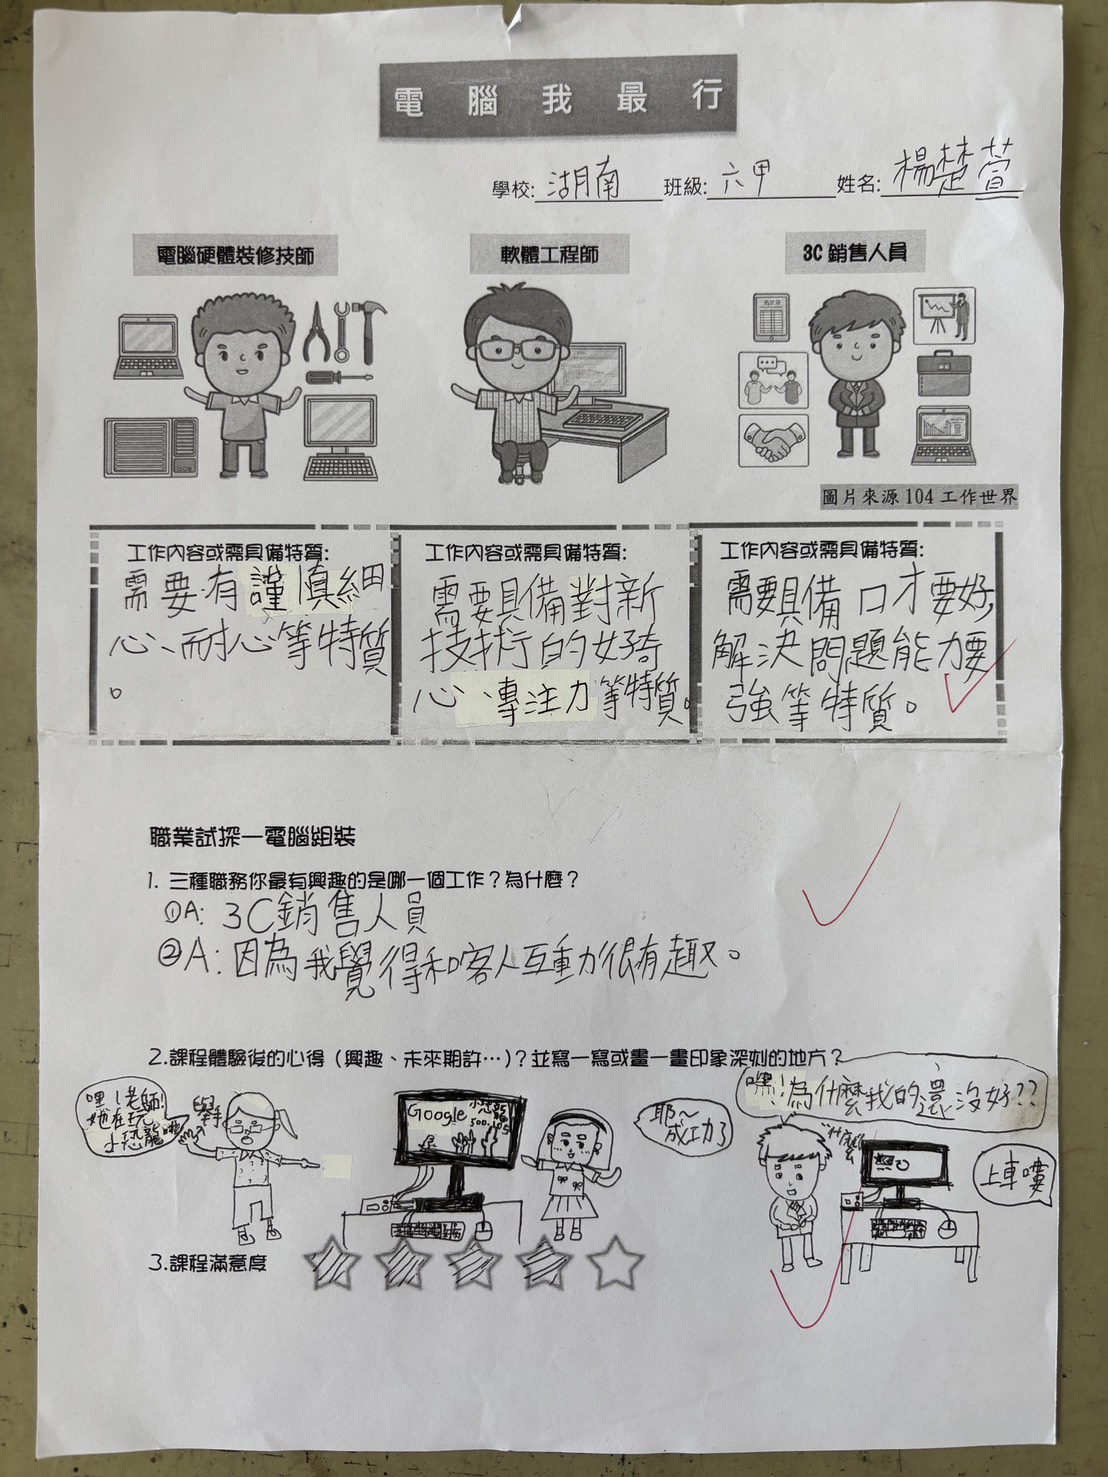 電腦我最行
學校: 湖南 班級: 六甲 姓名: 楊楚萱
電腦硬體裝修技師
軟體工程師
3C 銷售人員
圖片來源 104 工作世界
工作內容或需具備特質:
需要有謹慎細
心、耐心等特質
。
工作內容或需具備特質:
需要具備對新
技術的好奇
心、專注力等特質。
工作內容或需具備特質:
需要具備口才要好,
解決問題能力要
強等特質。
職業試探—電腦組裝
1. 三種職務你最有興趣的是哪一個工作？為什麼？
①A: 3C銷售人員
②A: 因為我覺得和客人互動很有趣。
2.課程體驗後的心得（興趣、未來期許…）？並寫一寫或畫一畫印象深刻的地方？
嘿!老師!
她在玩
小恐龍啦
舉手
Google
小恐龍
耶~
成功了
嘿!為什麼我的還沒好??
什麼
上車嘍
3.課程滿意度